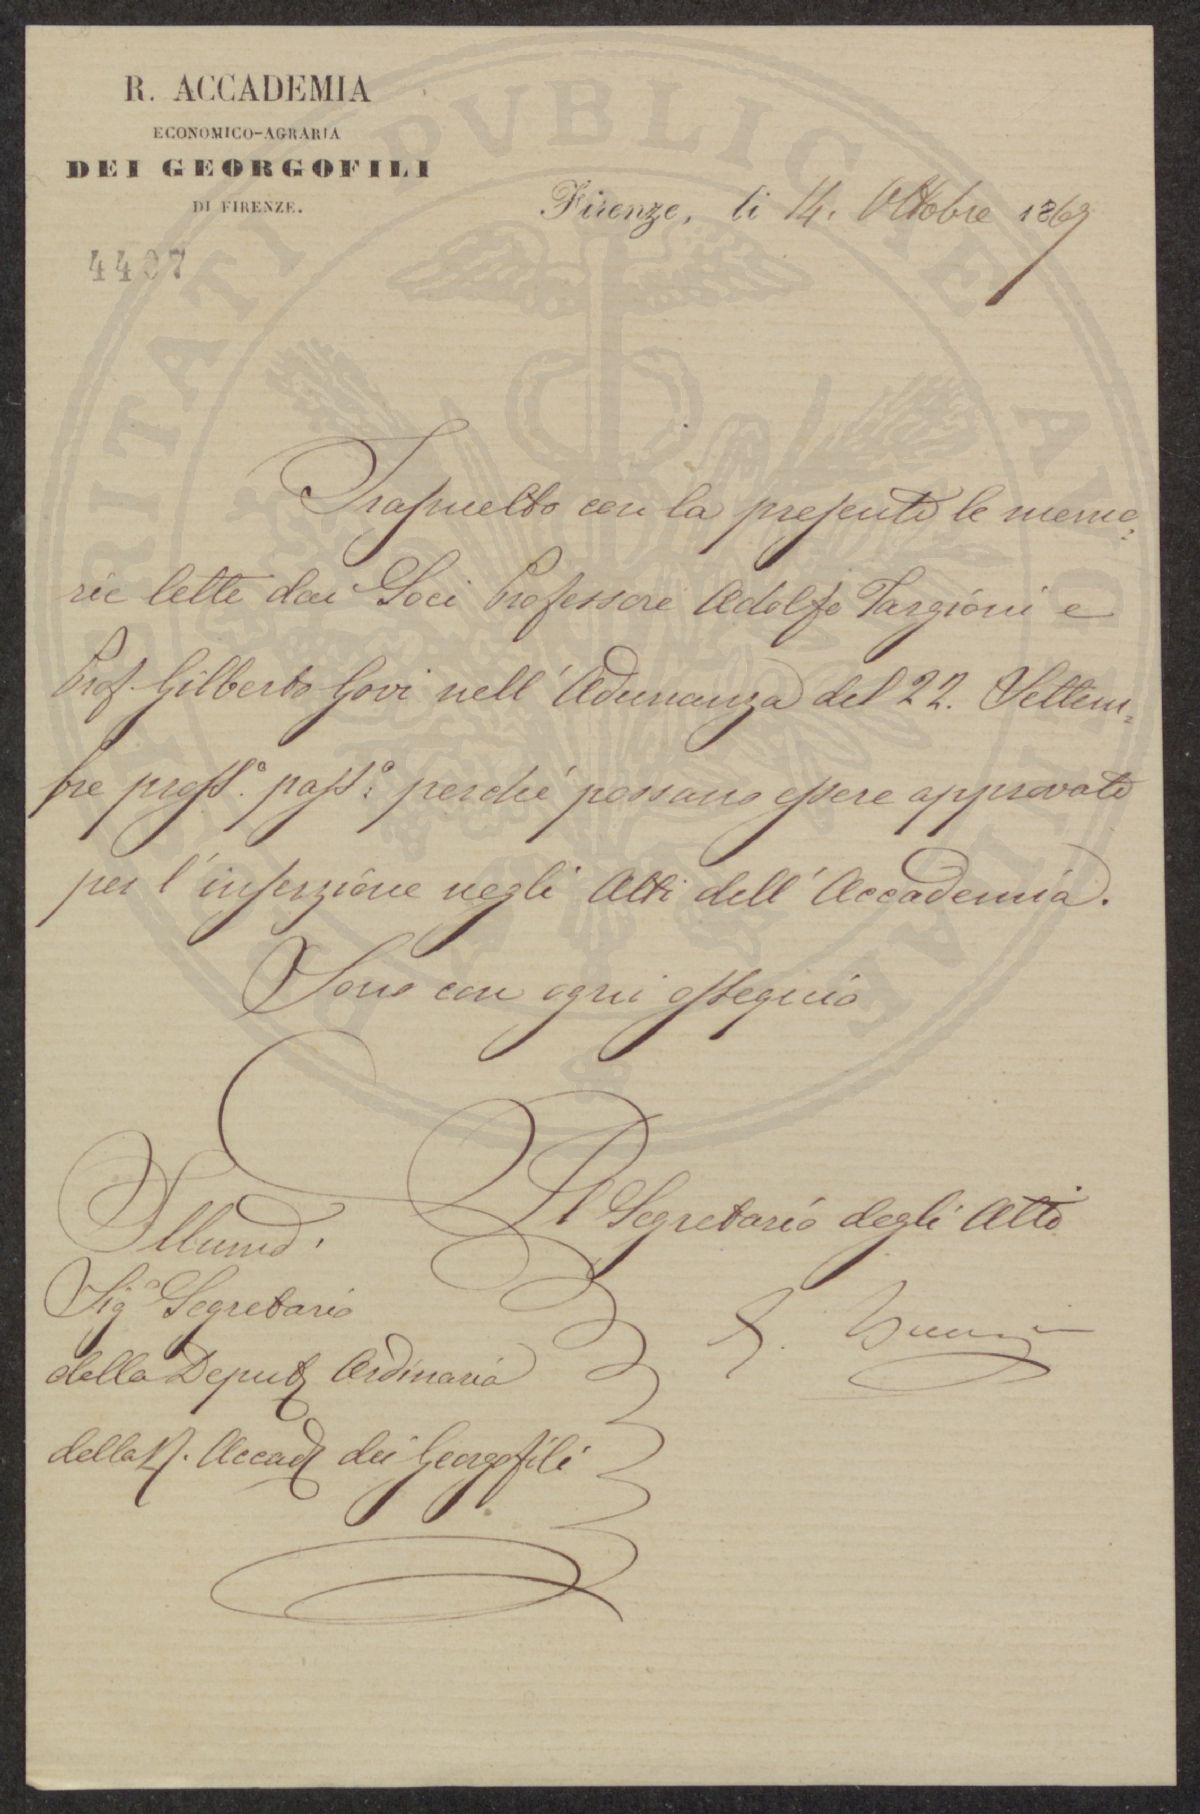 R. ACCADEMIA
ECONOMICO-AGRARIA
DEI GEORGOFILI
DI FIRENZE.
Firenze, li 14. Ottobre 1869
4407
Trasmetto con la presente le memo=
rie lette dai Soci Professore Adolfo Targioni e
Prof. Gilberto Govi nell' Adunanza del 22. Settem=
bre pross.º pass.º perchè possano essere approvate
per l' inserzione negli Atti dell' Accademia.
Sono con ogni ossequio
Il Segretario degli Atti
Illmo
Sig.º Segretario
della Deput. Ordinaria
della R. Accad. dei Georgofili
PUBLICAE